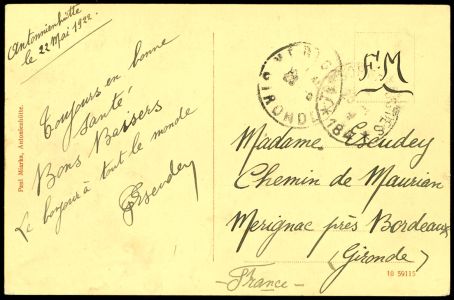 Antonnienhütte
le 22 Mai 1922.
Toujours en bonne
santé,
Bons Baisers
Le bonjour à tout le monde
GEseudey
Paul Miarka, Antonienhütte.
FM
GIRONDE
*184*
Madame Eseudey
Chemin de Maurian
Merignac près Bordeaux
(Gironde)
- France -
10 59115